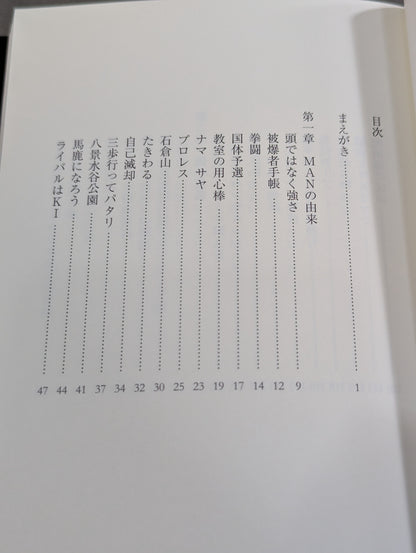 目次
まえがき……………………1
第一章　MANの由来
頭ではなく強さ……………………9
被爆者手帳……………………12
拳闘……………………14
国体予選……………………17
教室の用心棒……………………19
ナマ　サヤ……………………23
プロレス……………………25
石倉山……………………30
たきわる……………………32
自己滅却……………………34
三歩行ってバタリ……………………37
八景水谷公園……………………41
馬鹿になろう……………………44
ライバルはKI……………………47